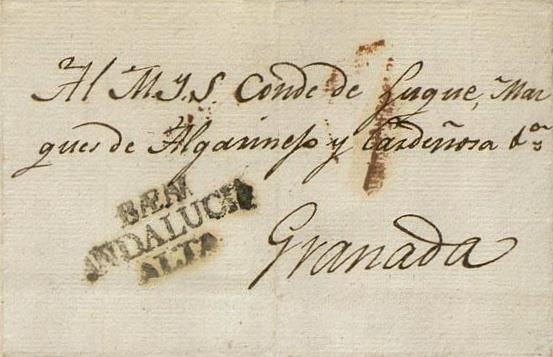 Al M.Y.S Conde de Luque, Mar
ques de Algarinejo y Cardeñosa &.ª
BAEN
ANDALUCIA
ALTA
Granada